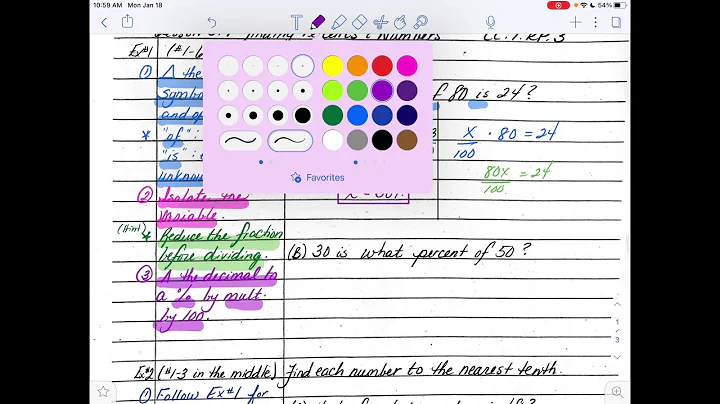 10:59 AM Mon Jan 18
54%
Finding Percents & Numbers CC.7.RP.3
Ex#1 (#1-6
① Δ the
symbo
and op
* "of" :
"is" : e
unknow
② Isolate the
variable.
(Hint) * Reduce the fraction
before dividing.
③ Δ the decimal to
a % by mult.
by 100.
f 80 is 24?
3
x/100 · 80 = 24
80x/100 = 24
Favorites
(B) 30 is what percent of 50?
Ex#2 (#1-3 in the middle) Find each number to the nearest tenth.
① Follow Ex#1 for
1
3